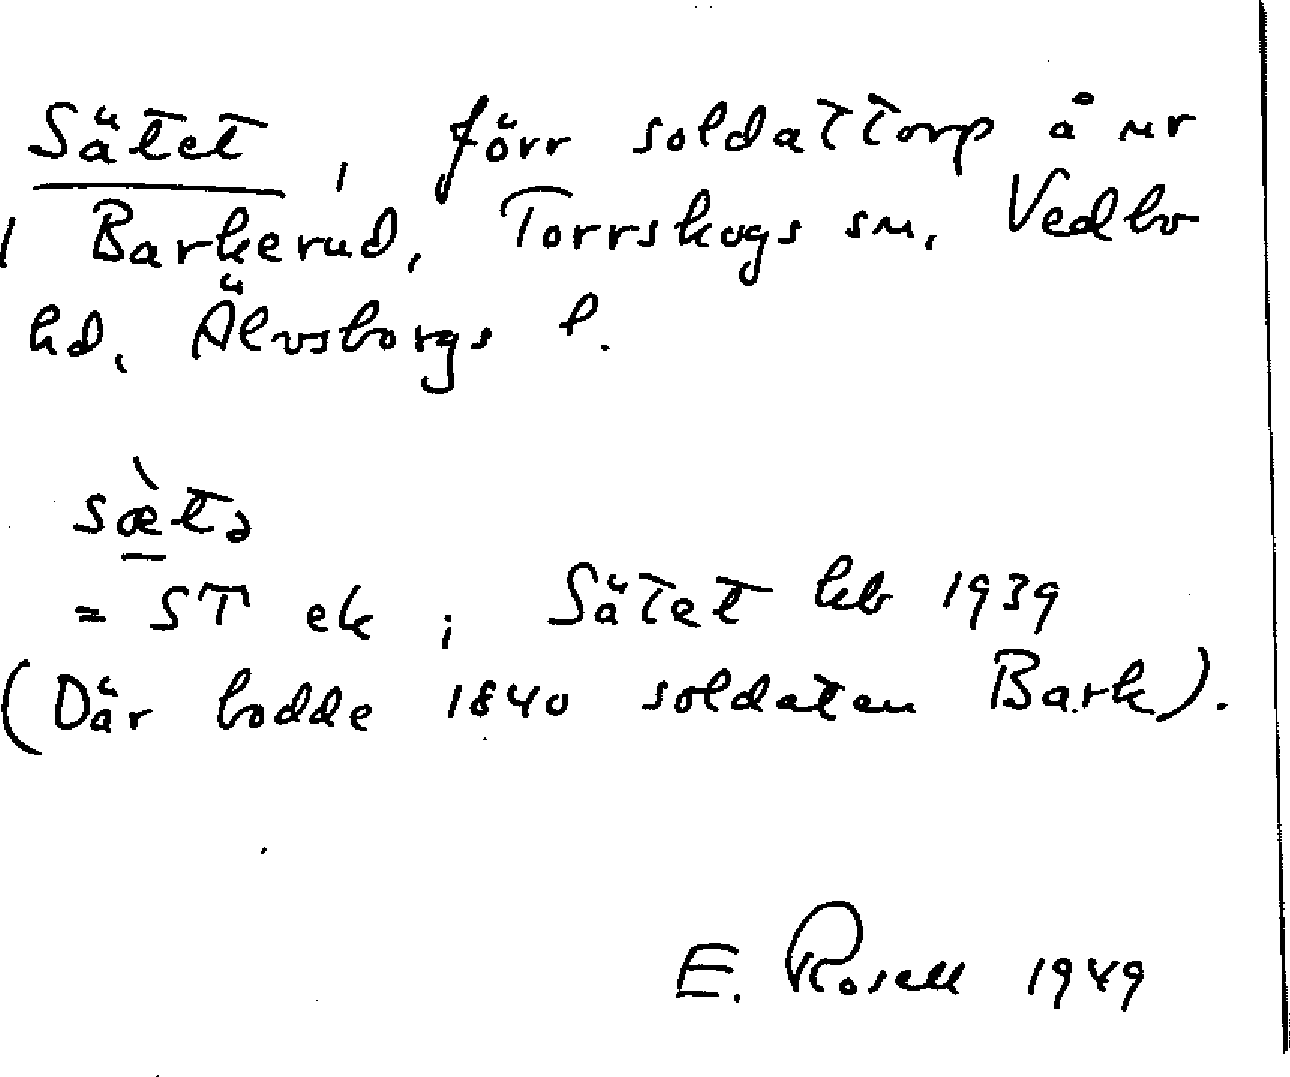 Sätet, förr soldattorp å nr
1 Barkerud, Torrskogs sn, Vedbo
hd, Älvsborgs l.
sæ̀tə
= ST ek; Sätet kb 1939
(Där bodde 1840 soldaten Bark).
E. Rosell 1949